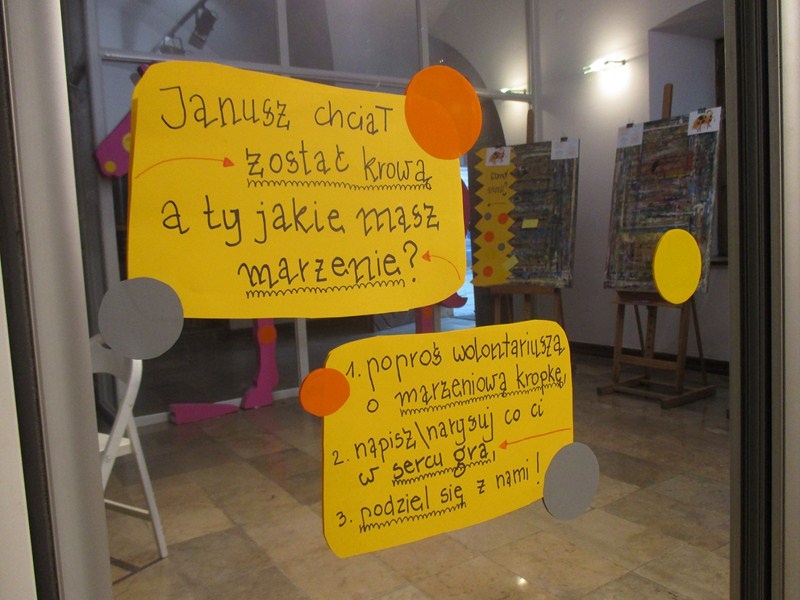 Janusz chciał
zostać krową
a ty jakie masz
marzenie?
1. poproś wolontariusza
o marzeniową kropkę,
2. napisz\narysuj co ci
w sercu gra,
3. podziel się z nami!